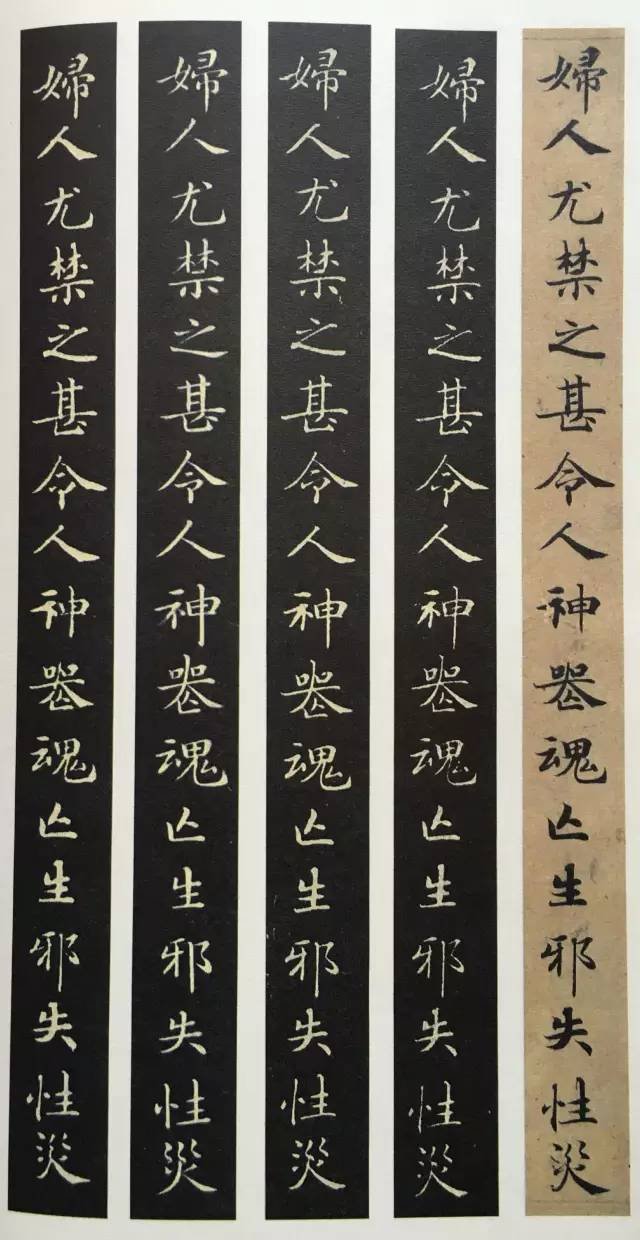 婦人尤禁之甚令人神喪魂亡生邪失性災
婦人尤禁之甚令人神喪魂亡生邪失性災
婦人尤禁之甚令人神喪魂亡生邪失性災
婦人尤禁之甚令人神喪魂亡生邪失性災
婦人尤禁之甚令人神喪魂亡生邪失性災